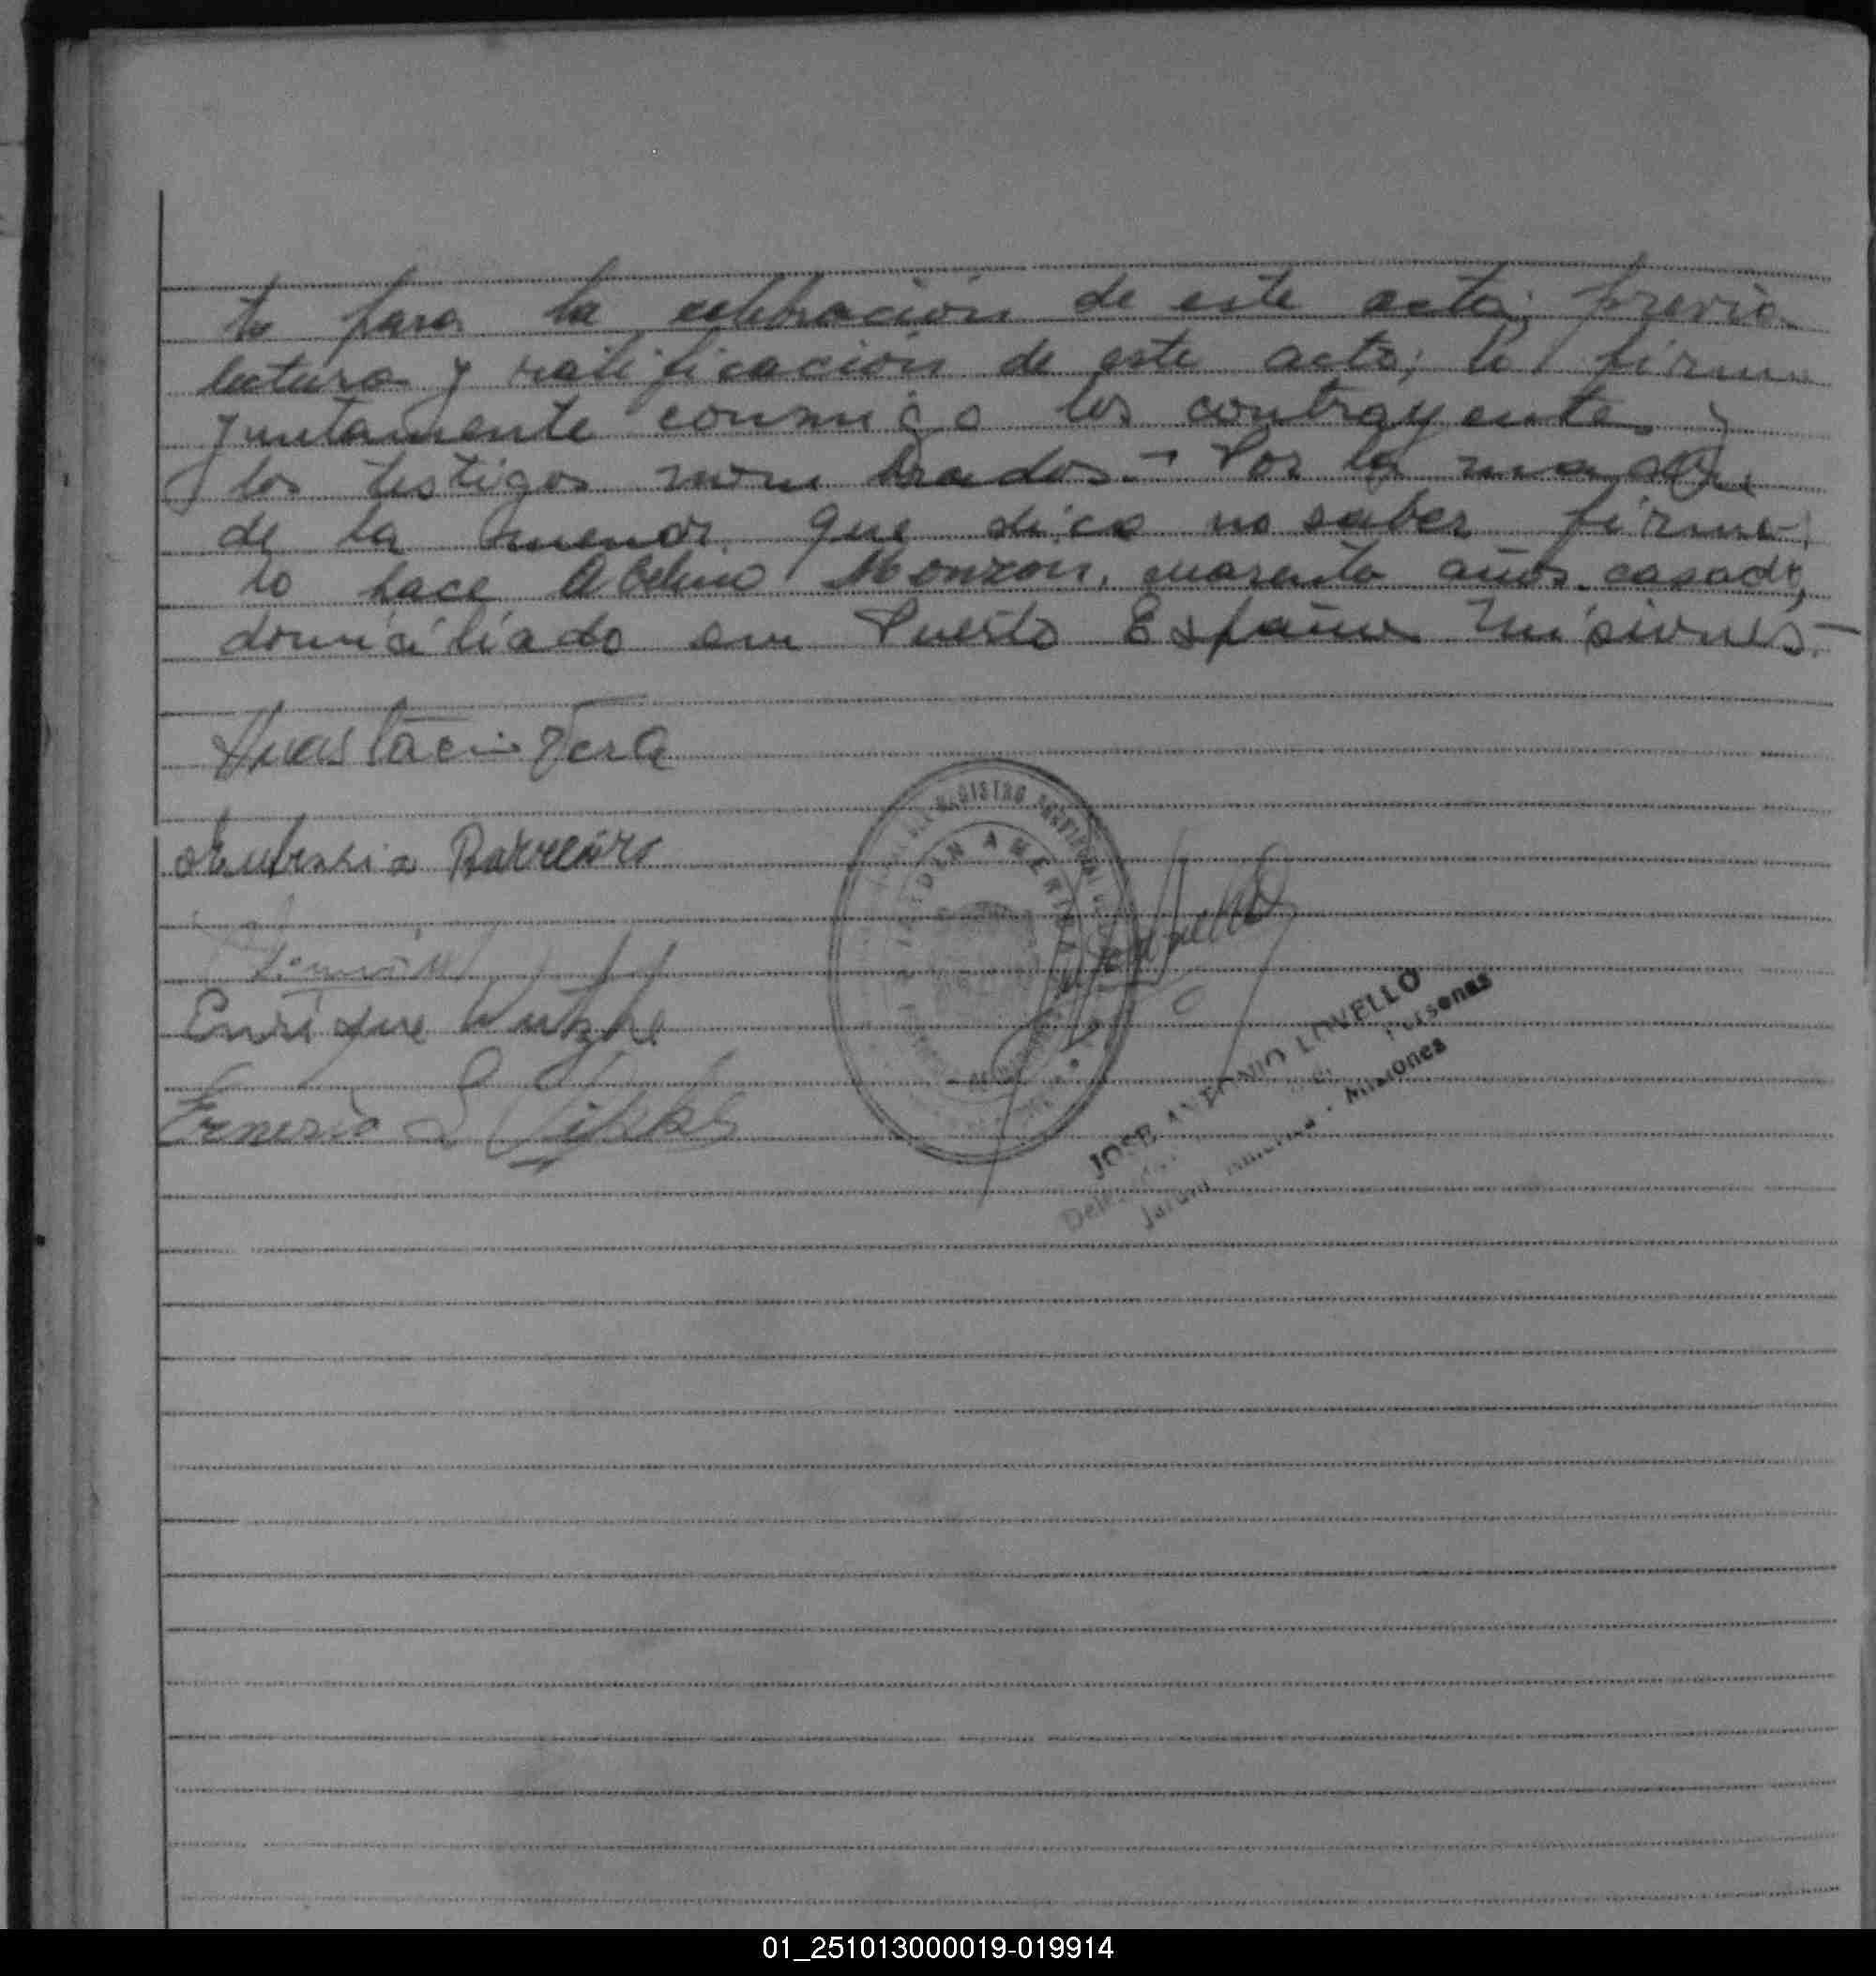 to para la celebración de este acto; previa
lectura y ratificación de este acto; lo firma
juntamente conmigo los contrayente y
los testigos nom brados.- Por la madre
de la menor que dice no saber firma
lo hace Abelino Monzon, cuarenta años casado,
domiciliado en Puerto España Misiones.-
Anastacio Vera
Barreiro
REGISTRO PROVINCIAL
JARDIN AMERICA
Enrique
JOSE ANTONIO LOVELLO
Personas
Jardin America - Misiones
01_251013000019-019914